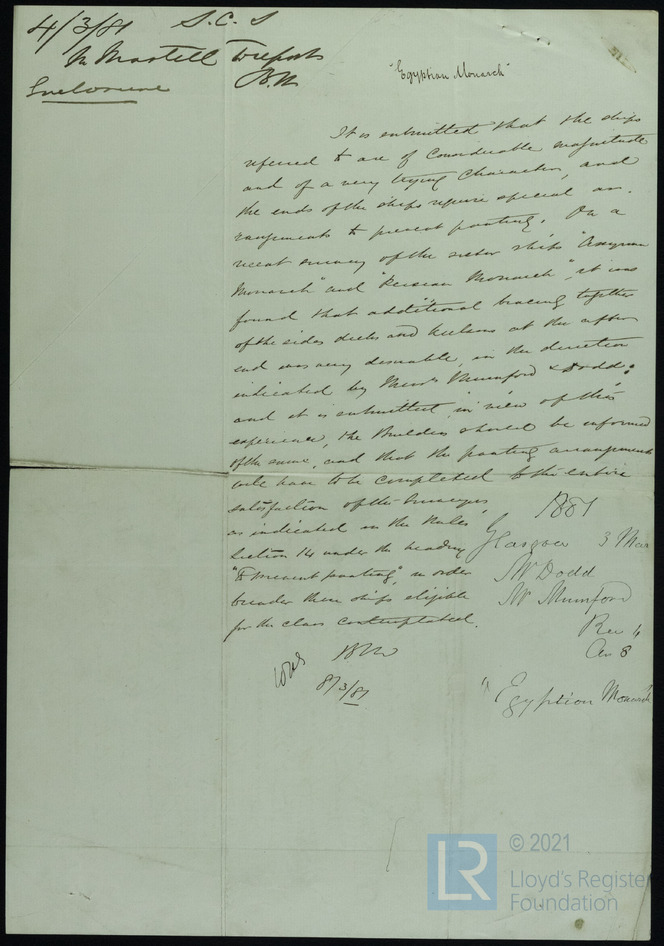 4/3/81 S.C.S
Mr Martell to report
Enclosure B.M
"Egyptian Monarch"
It is submitted that the ships
referred to are of considerable magnitude
and of a very trying character, and
the ends of the ships require special ar-
rangements to prevent panting. On a
recent survey of the sister ships "Assyrian
Monarch" and "Persian Monarch", it was
found that additional bracing together
of the sides decks and keelsons at the after
end was very desirable, in the direction
indicated by Messrs Mumford & Dodd:
and it is submitted, in view of this
experience, the Builders should be informed
of the same, and that the panting arrangements
will have to be completed to the entire
satisfaction of the Surveyors
as indicated in the Rules
Section 14 under the heading
"To prevent panting", in order
to render these ships eligible
for the class contemplated.
8/3/81
1881
Glasgow 3 Mar
Mr Dodd
Mr Mumford
Rec 4
An 8
"Egyptian Monarch"
LR © 2021
Lloyd's Register
Foundation